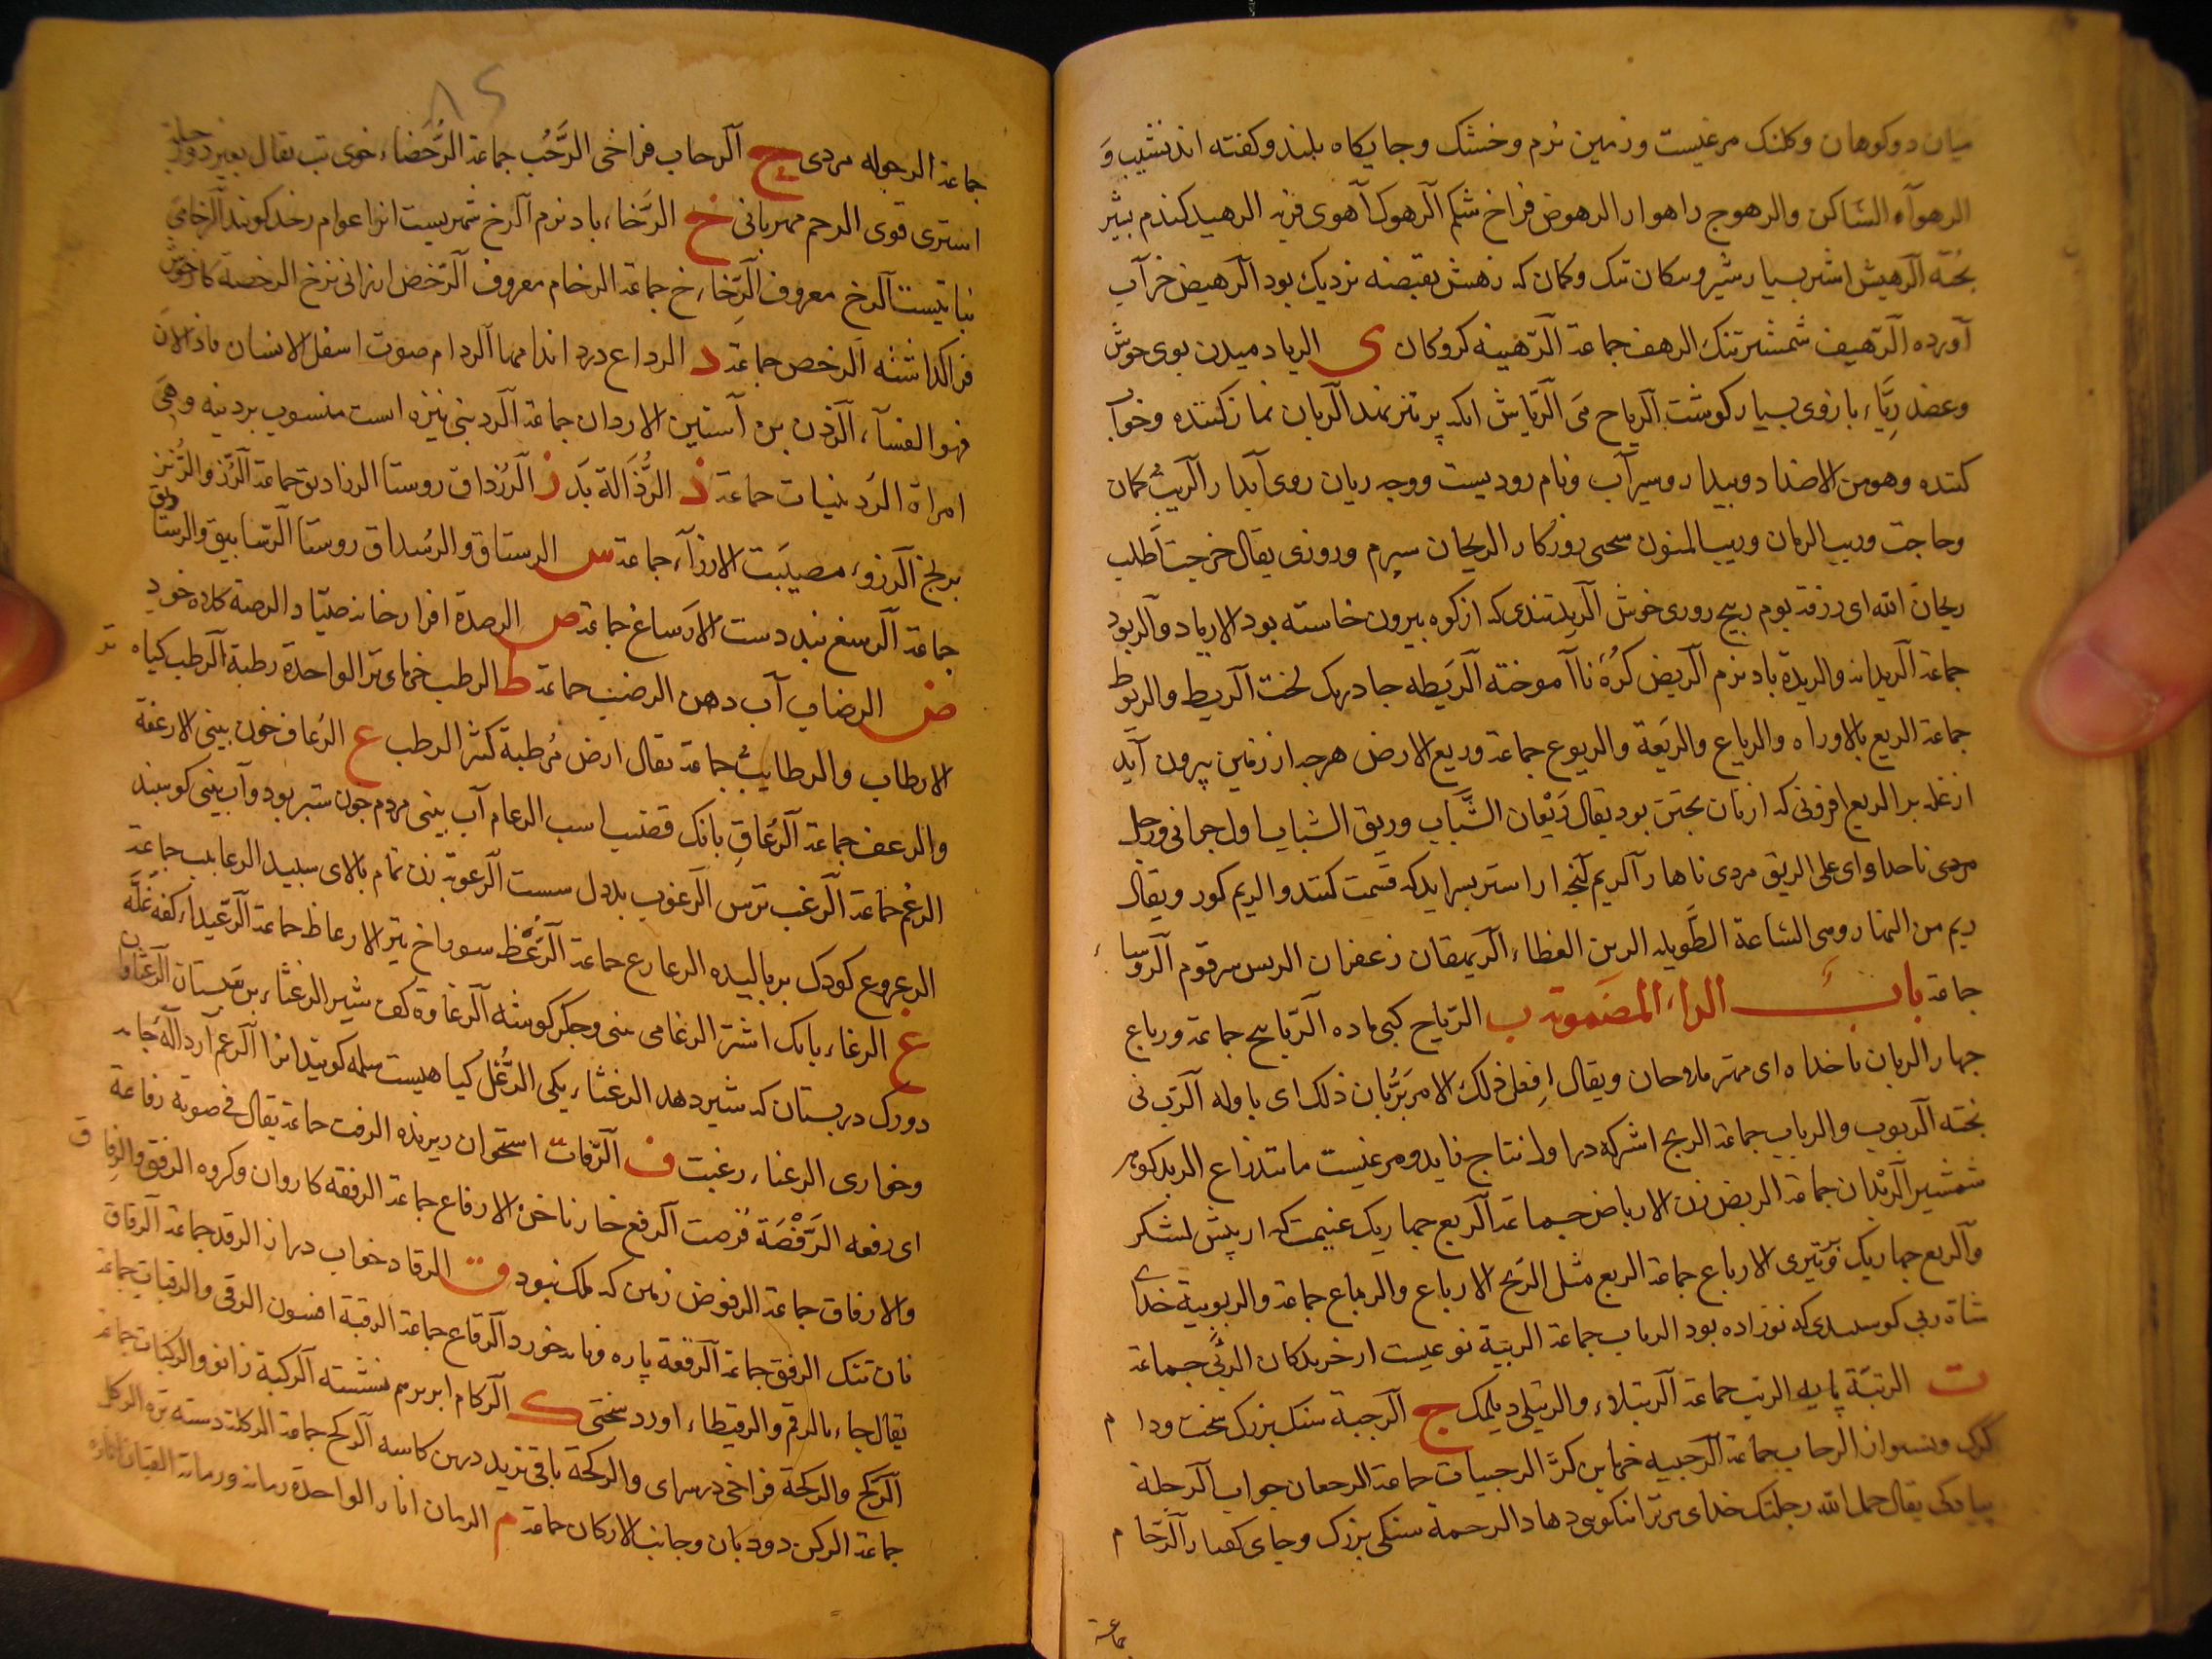 میان دو کوهان و کلنک مرغیست و زمین نرم و خشک و جایکاه بلند و کفته اند نشیب و
الرهوآء الساکن والرهوج راهوار الرهوض فراخ شکم الرهوک آهوی فربه الرهید کندم بشیر
پخته الرهیش اشتر بسیار شیر و سکان تنک و کمان که زهش بقبضه نزدیک بود الرهیض خر آب
آورده الرهیف شمشیر تنک الرهف جماعة الرهینه کروکان ی الریاد میدن بوی خوش
وعضد ریاء بازوی بسیار کوشت الریاح می الریاش انکه پر تیر نهد الریان نماز کننده و خواب
کننده وهو من الاضداد و بیدار و سیرآب و نام رودیست و وجه ریان روی آبدار الریب کمان
و حاجت وریب الزمان وریب المنون سختی روزکار الریحان سپرم و روزی یقال خرجت اطلب
ریحان الله ای رزقه یوم ریح روزی خوش الرید تندی که از کوه بیرون خاسته بود الاریاد والریود
جماعة الریدانه والریدة باد نرم الریض کره نا آموخته الریطه جادر یک لخت الریط والریوط
جماعة الریع بالا و راه والریاع والریعة والریوع جماعة وریع الارض هرجه از زمین بیرون آید
از غله بر الریع افزونی که از نان پختن بود یقال ریعان الشباب وریق الشباب اول جوانی و رجل
مردی ناهار ای علی الریق مردی ناهار الریم آنجه از استر بسر آید که قسمت کنند والریم کور ویقال
ریم من النهار وهی الساعة الطویله الرین الغطاء الریهقان زعفران الریس سر قوم الروسا
جماعة باب الراء المضمومة ب الرباح کبی ماده الربابیح جماعة ورباع
جهار الربان ناخداه ای مهتر ملاحان ویقال افعل ذلک الامر بربان ذلک ای باوله الرب نی
پخته الربوب والرباب جماعة الربح اشتر که در اول نتاج زاید و مرغیست مانند زاغ الربد کوهر
شمشیر الربدان جماعة الربض زن الارباض جماعة الربع جهار یک غنیمت که از پیش لشکر
والربع جهار یک و تیری الارباع جماعة الربع مثل الربح الارباع والرباع جماعة والربوبیة خدای
شاة ربی کوسپندی که نوزاده بود الرباب جماعة الربیة نوعیست از خربدکان الربی جماعة
ت الرتبة پایه الرتب جماعة الرتیلاء والرتیلی دیلمک ج الرجبة سنک بزرک سخت و دام
کرک و ستون الرجاب جماعة الرجبیه خرما بن کژ الرجبیات جماعة الرجعان جواب الرجلة
پیادکی یقال حمل الله رجلتک خدای برتر انیکوی دهاد الرحمة سنکی بزرک و جای کفتار الرجام
جماعة
جماعة الرجوله مردی ح الرحاب فراخی الرحب جماعة الرحضاء خوی تب یقال بعیر ذو رحلة
استری قوی الرحم مهربانی خ الرخاء باد نرم الرخ شهریست انرا عوام رخد کویند الرخامی
نباتیست الرخ معروف الرخاخ جماعة الرخام معروف الرخص ارزانی نرخ الرخصة کار خوش
فراکذاشته الرخص جماعة د الرداع درد اندامها الردام صوت اسفل الانسان فاذ الان
فهو الفساء الردن بن آستین الاردان جماعة الردینی نیزه است منسوب بردینه وهی
امراة الردینیات جماعة ذ الرذالة بد ز الرزداق روستا الرزادیق جماعة الرز والرنز
برنج الرزء مصیبت الارزآء جماعة س الرستاق والرسداق روستا الرساتیق والرستاق
جماعة الرسغ بند دست الارساغ جماعة ص الرصدة افزار خانه صیاد الرصة کلاه خود
ض الرضاب آب دهن الرضب جماعة ط الرطب خرمای تر الواحدة رطبة الرطب کیاه تر
الارطاب والرطایب جماعة یقال ارض مرطبة کثیر الرطب ع الرعاف خون بینی الارعفة
والرعف جماعة الرعاق بانک قضیب اسب الرعام آب بینی مردم جون ستبر بود و آب بینی کوسپند
الرعم جماعة الرعب ترس الرعوب بددل سست الرعبوبة زن تمام بالای سپید الرعابیب جماعة
الرعروع کودک بربالیده الرعارع جماعة الرعظ سوراخ تیر الارعاظ جماعة الرعیداء کفه غله
غ الرغاء بانک اشتر الرغامی بینی و جکر کوشه الرغاوة کف شیر الرغثاء بن پستان الرغثاوان
دو رک در پستان که شیر دهد الرغثاء یکی الرغل کیاهیست سلمه کویند انرا الرغم آرد الاء جامه
و خواری الرغباء رغبت ف الرفات استخوان ریزیده الرفت جماعة یقال فی صوته رفاعة
ای رفعه الرفصة فرصت الرفغ خار ناخن الارفاغ جماعة الرفقه کاروان و کروه الرفق والرفاق
والارفاق جماعة الرفوض زمین که ملک نبود ق الرقاد خواب دراز الرقد جماعة الرقاق
نان تنک الرقق جماعة الرقعة پاره و نامه خورد الرقاع جماعة الرقیة افسون الرقی والرقیات جماعة
یقال جاء بالرقم والرقیطاء اورد سختی ک الرکام ابر برهم نشسته الرکبة زانو والرکبات جماعة
الرکح والرکحة فراخی در سرای والرکحة باقی ترید در بن کاسه الرکح جماعة الرکلة دسته تره الرکل
جماعة الرکن دودمان و جانب الارکان جماعة م الرمان انار الواحدة رمانه ورمانة القبان اناره